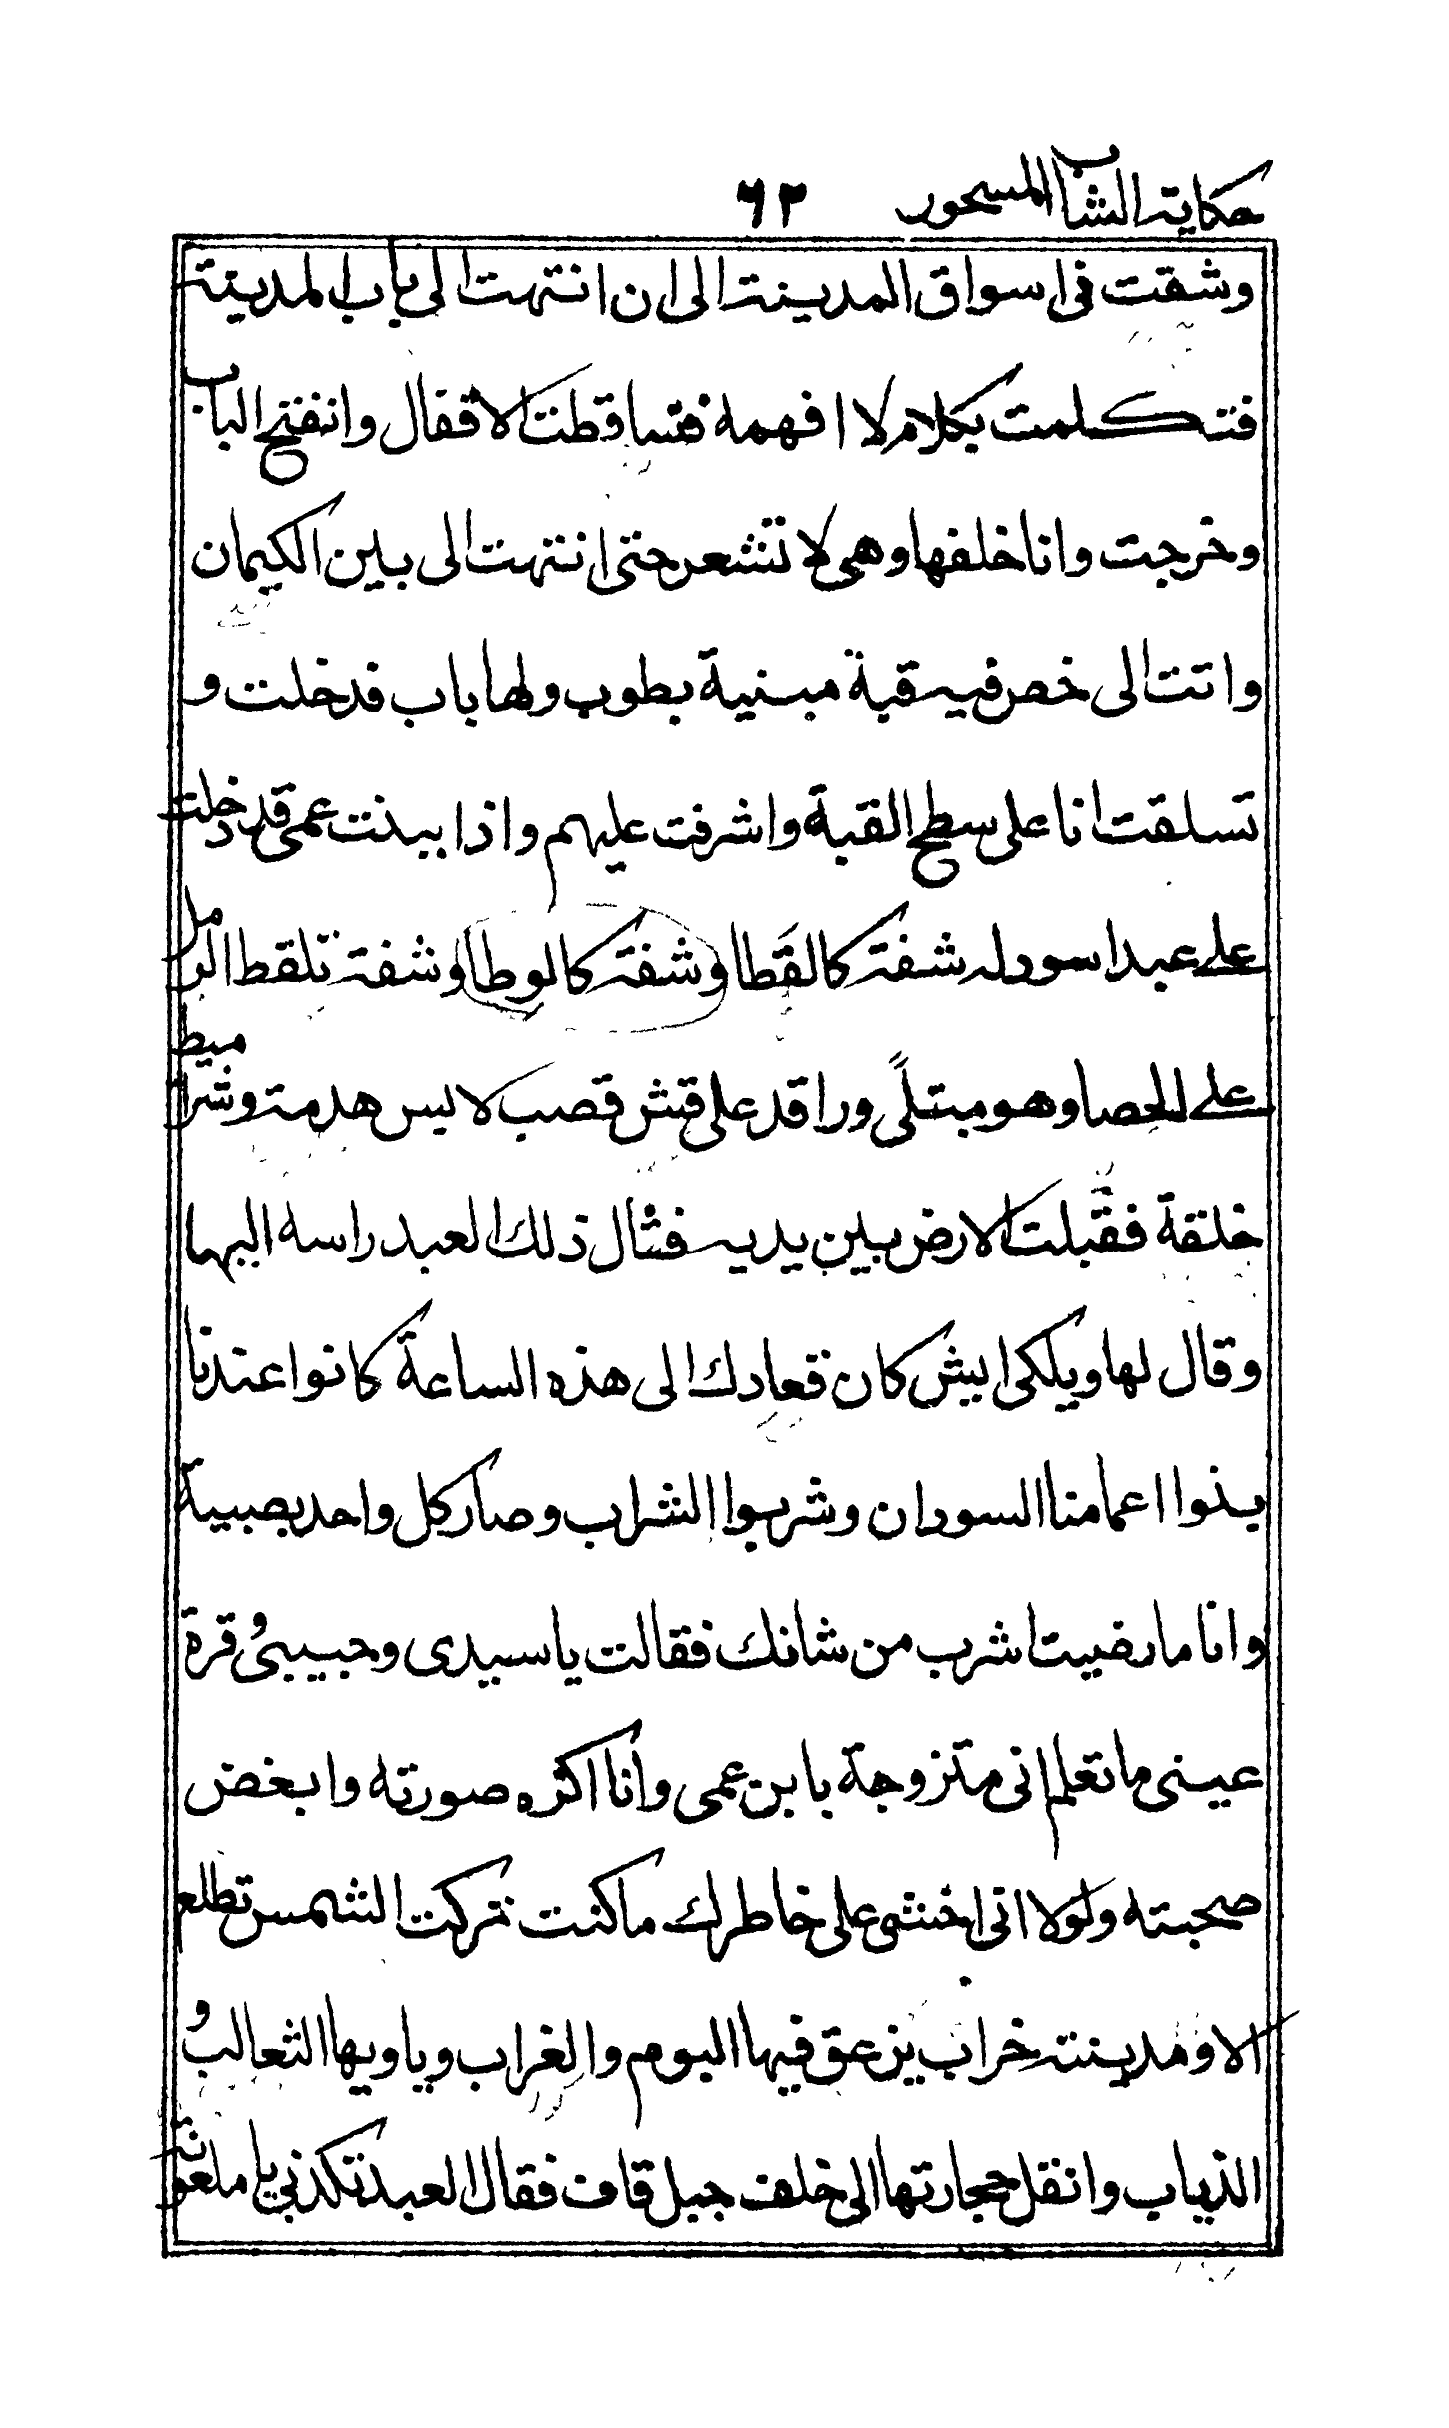 حكاية الشاب المسحور ٦٢
وشقت في اسواق المدينة الى ان انتهت الى باب المدينة
فتكلمت بكلام لا افهمه فتساقطت الاقفال وانفتح الباب
وخرجت وانا خلفها وهي لا تشعر حتى انتهت الى بين الكيمان
واتت الى خص فيه قبة مبنية بطوب ولها باب فدخلت و
تسلقت انا على سطح القبة واشرفت عليهم واذا ببنت عمي قد دخلت
على عبد اسود له شفة كالقَطا وشفة كالوطا وشفة تلقط الرمل
على الحصا وهو مبتلًى وراقد على قش قصب لابس هدمة وشراميط
خلقة فقَّبلت الارض بين يديه فشال ذلك العبد راسه اليها
وقال لها ويلكي ايش كان قعادك الى هذه الساعة كانوا عندنا
بنوا اعمامنا السودان وشربوا الشراب وصار كل واحد بصبية
وانا ما رضيت اشرب من شانك فقالت يا سيدي وحبيبي و قرة
عيني ما تعلم اني متزوجة بابن عمي وانا اكره صورته وابغض
صحبته ولولا اني اخشى على خاطرك ما كنت تركت الشمس تطلع
الا و مدينته خراب يزعق فيها البوم والغراب وياويها الثعالب و
الذياب وانقل حجارتها الى خلف جبل قاف فقال العبد تكذبي يا ملعونة